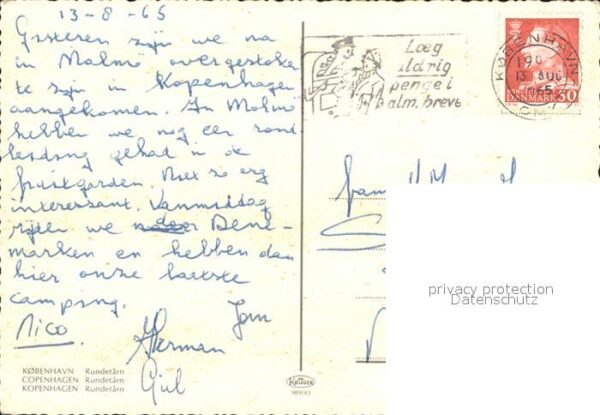 13-8-65
Gisteren zijn we na
in Malmö overgestoken
te zijn in Kopenhagen
aangekomen. In Malmö
hebben we nog een rond
leiding gehad in de
fruitgarden. Niet zo erg
interessant. Vanmiddag
rijden we door Dene-
marken en hebben dan
hier onze laatste
camping.
Jan
Nico
Herman
Giel
KØBENHAVN Rundetårn
COPENHAGEN Rundetårn
KOPENHAGEN Rundetårn
KRÜGER
Læg
aldrig
penge i
alm. breve
KØBENHAVN
13 AUG
1965
DANMARK 30
fam
privacy protection
Datenschutz